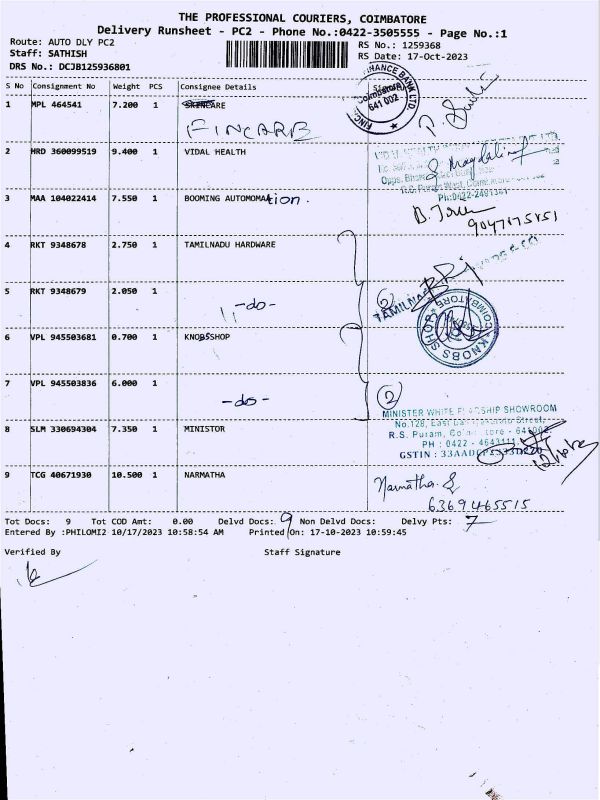 THE PROFESSIONAL COURIERS, COIMBATORE
Delivery Runsheet - PC2 - Phone No.:0422-3505555 - Page No.:1
Route: AUTO DLY PC2
Staff: SATHISH
DRS No.: DCJB125936801
RS No.: 1259368
RS Date: 17-Oct-2023
S No Consignment No Weight PCS Consignee Details
1 MPL 464541 7.200 1
FINCARE
641 002
2 HRD 360099519 9.400 1 VIDAL HEALTH
Ph:0422-2491341
3 MAA 104022414 7.550 1 BOOMING AUTOMOMAtion.
9047175851
4 RKT 9348678 2.750 1 TAMILNADU HARDWARE
5 RKT 9348679 2.050 1 -do-
2
TAMILNA
6 VPL 945503681 0.700 1 KNOBSSHOP
KNOBS SHOP COIMBATORE
7 VPL 945503836 6.000 1 -do-
2
MINISTER WHITE FLAGSHIP SHOWROOM
8 SLM 330694304 7.350 1 MINISTOR
No.128, East
Street,
R.S. Puram, Coimbatore - 641002.
PH : 0422 - 4643111
GSTIN : 33AAD
9 TCG 40671930 10.500 1 NARMATHA
Narmatha. S
6369465515
Tot Docs: 9 Tot COD Amt: 0.00 Delvd Docs: 9 Non Delvd Docs: Delvy Pts: 7
Entered By :PHILOMI2 10/17/2023 10:58:54 AM Printed On: 17-10-2023 10:59:45
Verified By Staff Signature